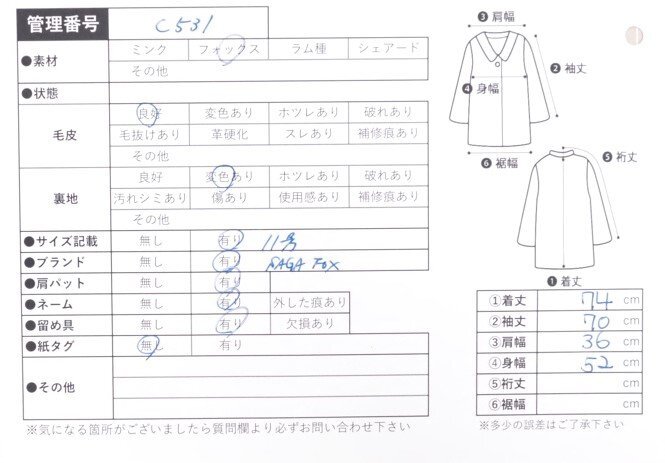 管理番号 C531
●素材 ミンク フォックス ラム種 シェアード
その他
●状態
毛皮 良好 変色あり ホツレあり 破れあり
毛抜けあり 革硬化 スレあり 補修痕あり
その他
裏地 良好 変色あり ホツレあり 破れあり
汚れシミあり 傷あり 使用感あり 補修痕あり
その他
●サイズ記載 無し 有り 11号
●ブランド 無し 有り SAGA FOX
●肩パット 無し 有り
●ネーム 無し 有り 外した痕あり
●留め具 無し 有り 欠損あり
●紙タグ 無し 有り
●その他
※気になる箇所がございましたら質問欄より必ずお問い合わせ下さい
❸肩幅
❷袖丈
❹身幅
❻裾幅
❺裄丈
❶着丈
①着丈 74 cm
②袖丈 70 cm
③肩幅 36 cm
④身幅 52 cm
⑤裄丈 cm
⑥裾幅 cm
※多少の誤差はご了承下さい